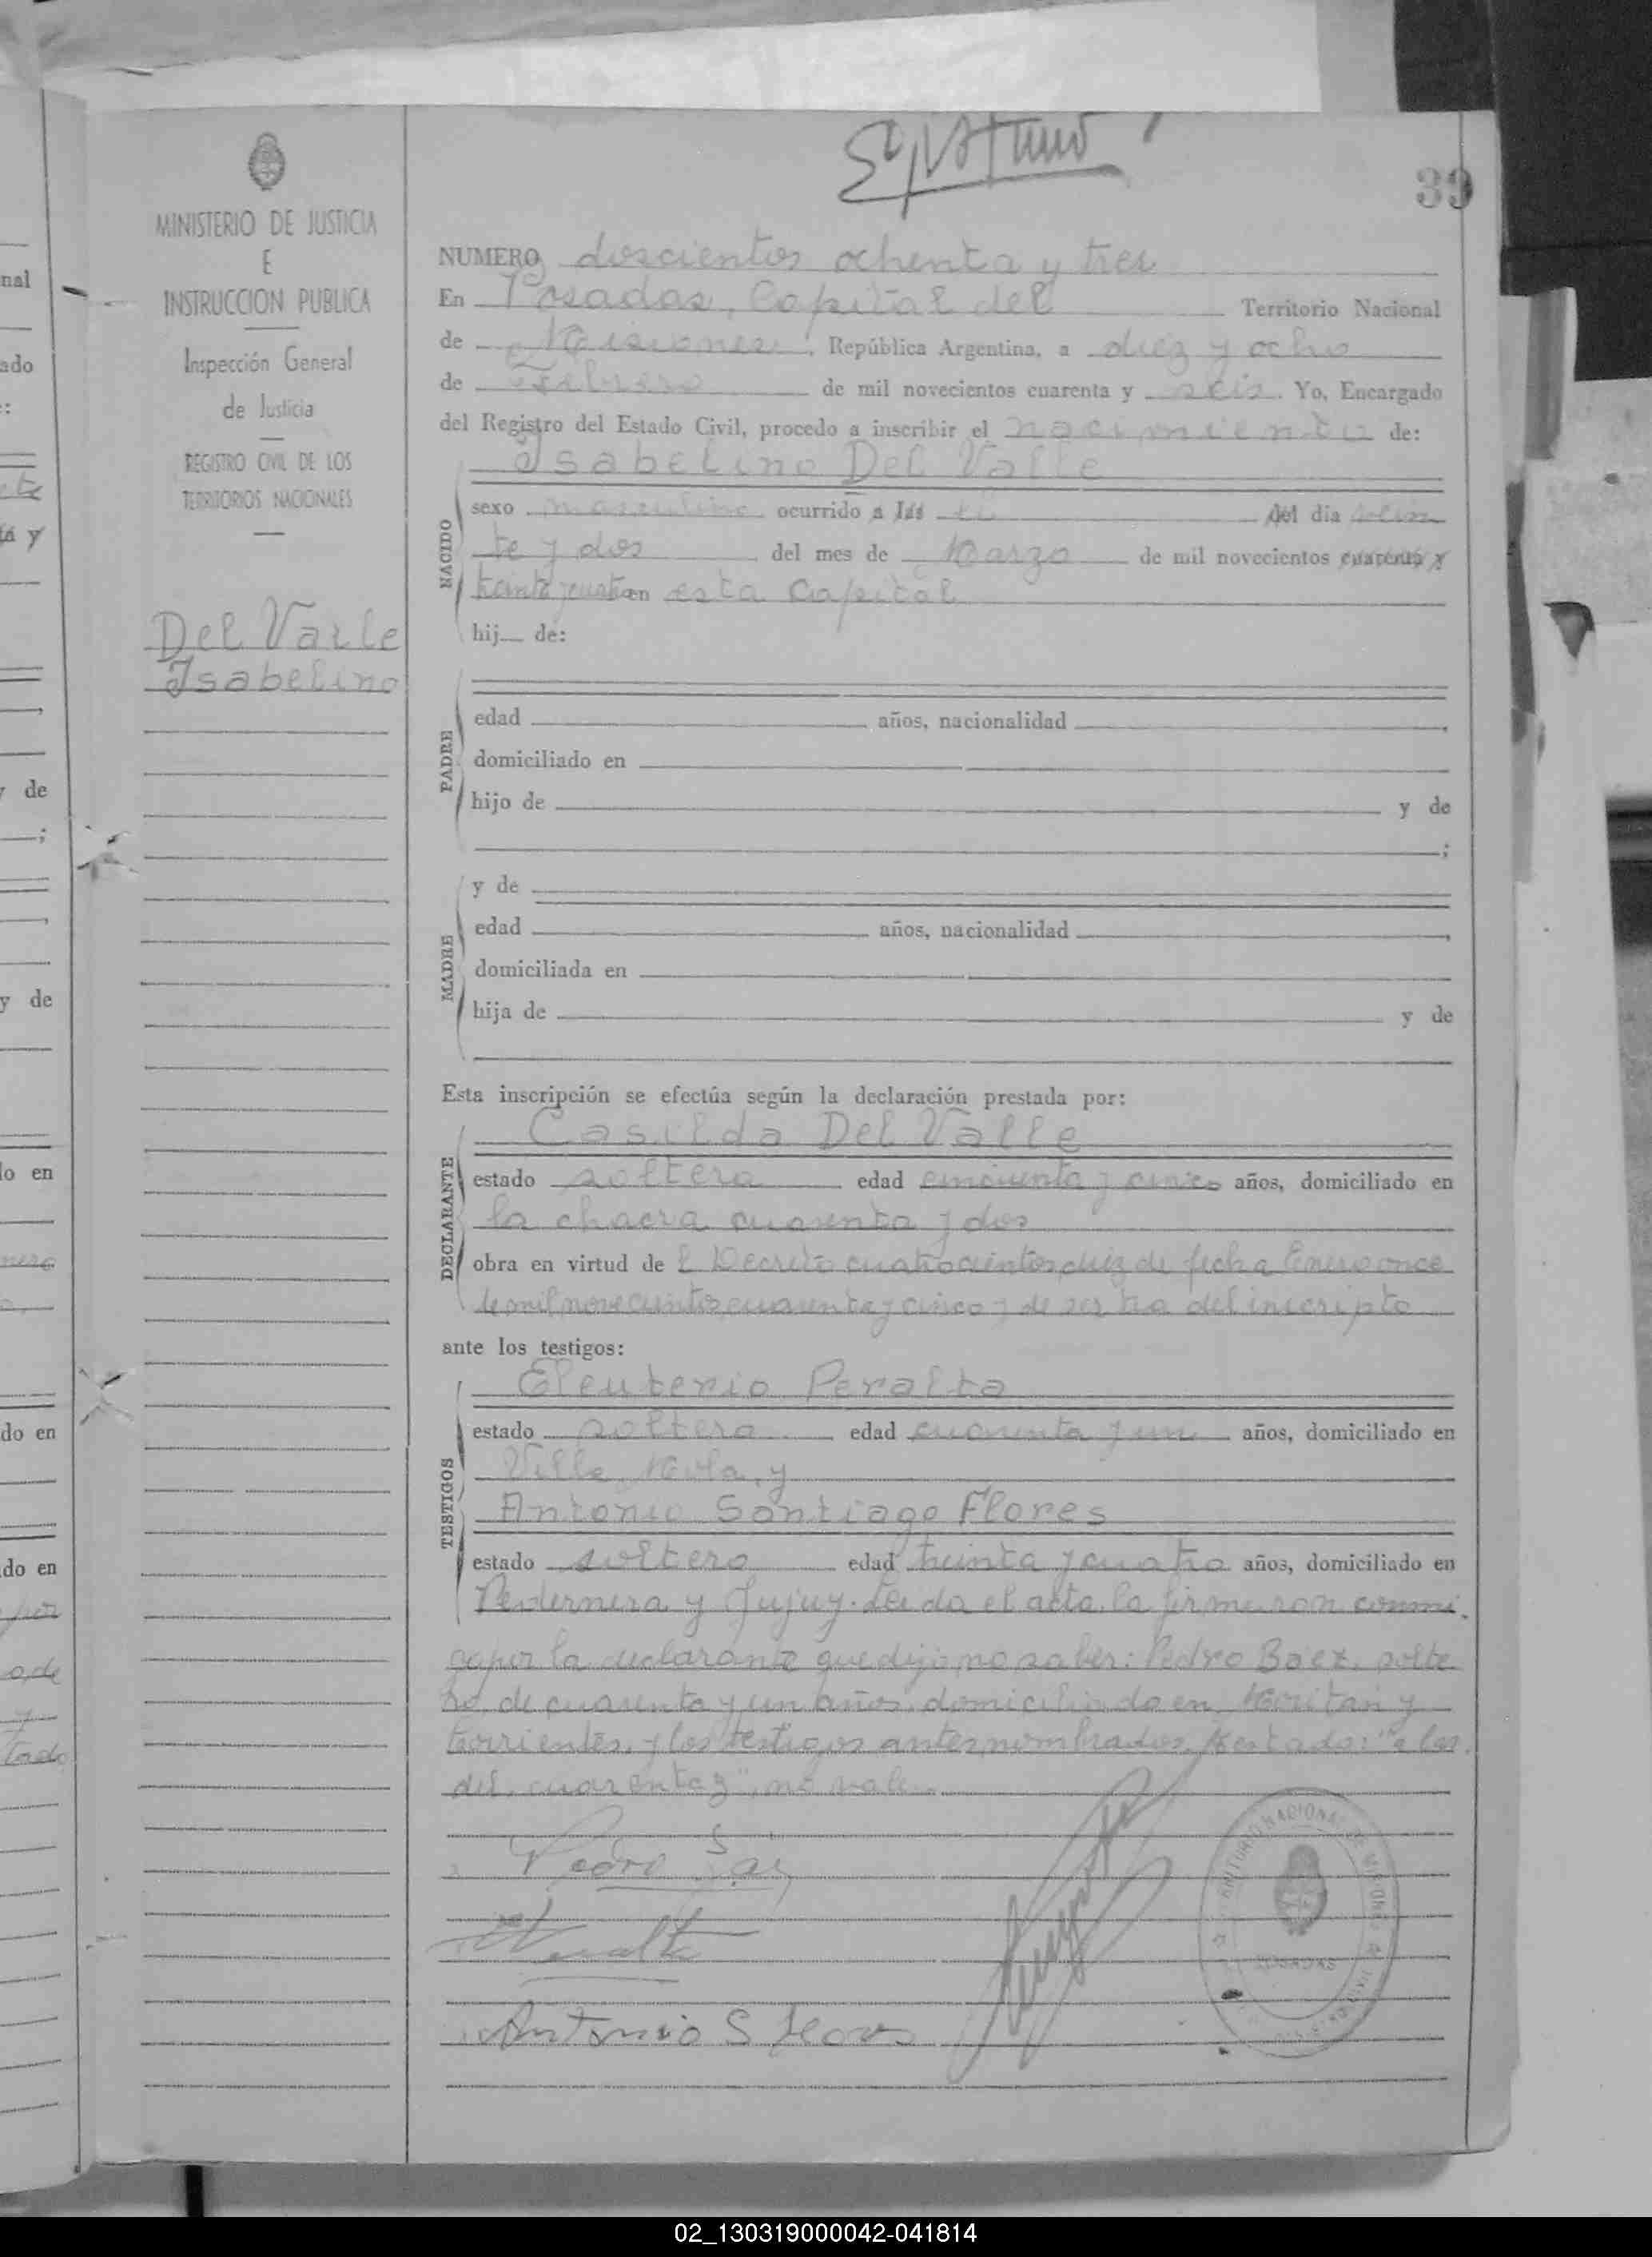 39
MINISTERIO DE JUSTICIA
E
INSTRUCCION PUBLICA
Inspección General
de Justicia
REGISTRO CIVIL DE LOS
TERRITORIOS NACIONALES
Del Valle
Isabelino
NUMERO doscientos ochenta y tres
En Posadas, Capital del Territorio Nacional
de Misiones, República Argentina, a diez y ocho
de Febrero de mil novecientos cuarenta y seis. Yo, Encargado
del Registro del Estado Civil, procedo a inscribir el nacimiento de:
Isabelino Del Valle
NACIDO
sexo masculino ocurrido a las el del día vein
te y dos del mes de Marzo de mil novecientos cuarenta y
en esta Capital
hij de:
PADRE
edad años, nacionalidad
domiciliado en
hijo de y de
;
MADRE
y de
edad años, nacionalidad
domiciliada en
hija de y de
Esta inscripción se efectúa según la declaración prestada por:
Casilda Del Valle
DECLARANTE
estado soltera edad cincuenta y cinco años, domiciliado en
la chacra cuarenta y dos
obra en virtud de l Decreto cuatrocientos diez de fecha Enero once
de mil novecientos cuarenta y cinco y de ser tia del inscripto
ante los testigos:
Eleuterio Peralta
TESTIGOS
estado soltero edad cuarenta y un años, domiciliado en
Villa y
Antonio Santiago Flores
estado soltero edad treinta y cuatro años, domiciliado en
Pedernera y Jujuy. Leida el acta, la firmaron conmi
go por la declarante que dijo no saber: Pedro Baez, solte
ro, de cuarenta y un años, domiciliado en y
Corrientes, y los testigos antes nombrados. Testado: "a las
del, cuarenta y", no vale.
Pedro
Peralta
Antonio S Flores
POSADAS
02_130319000042-041814